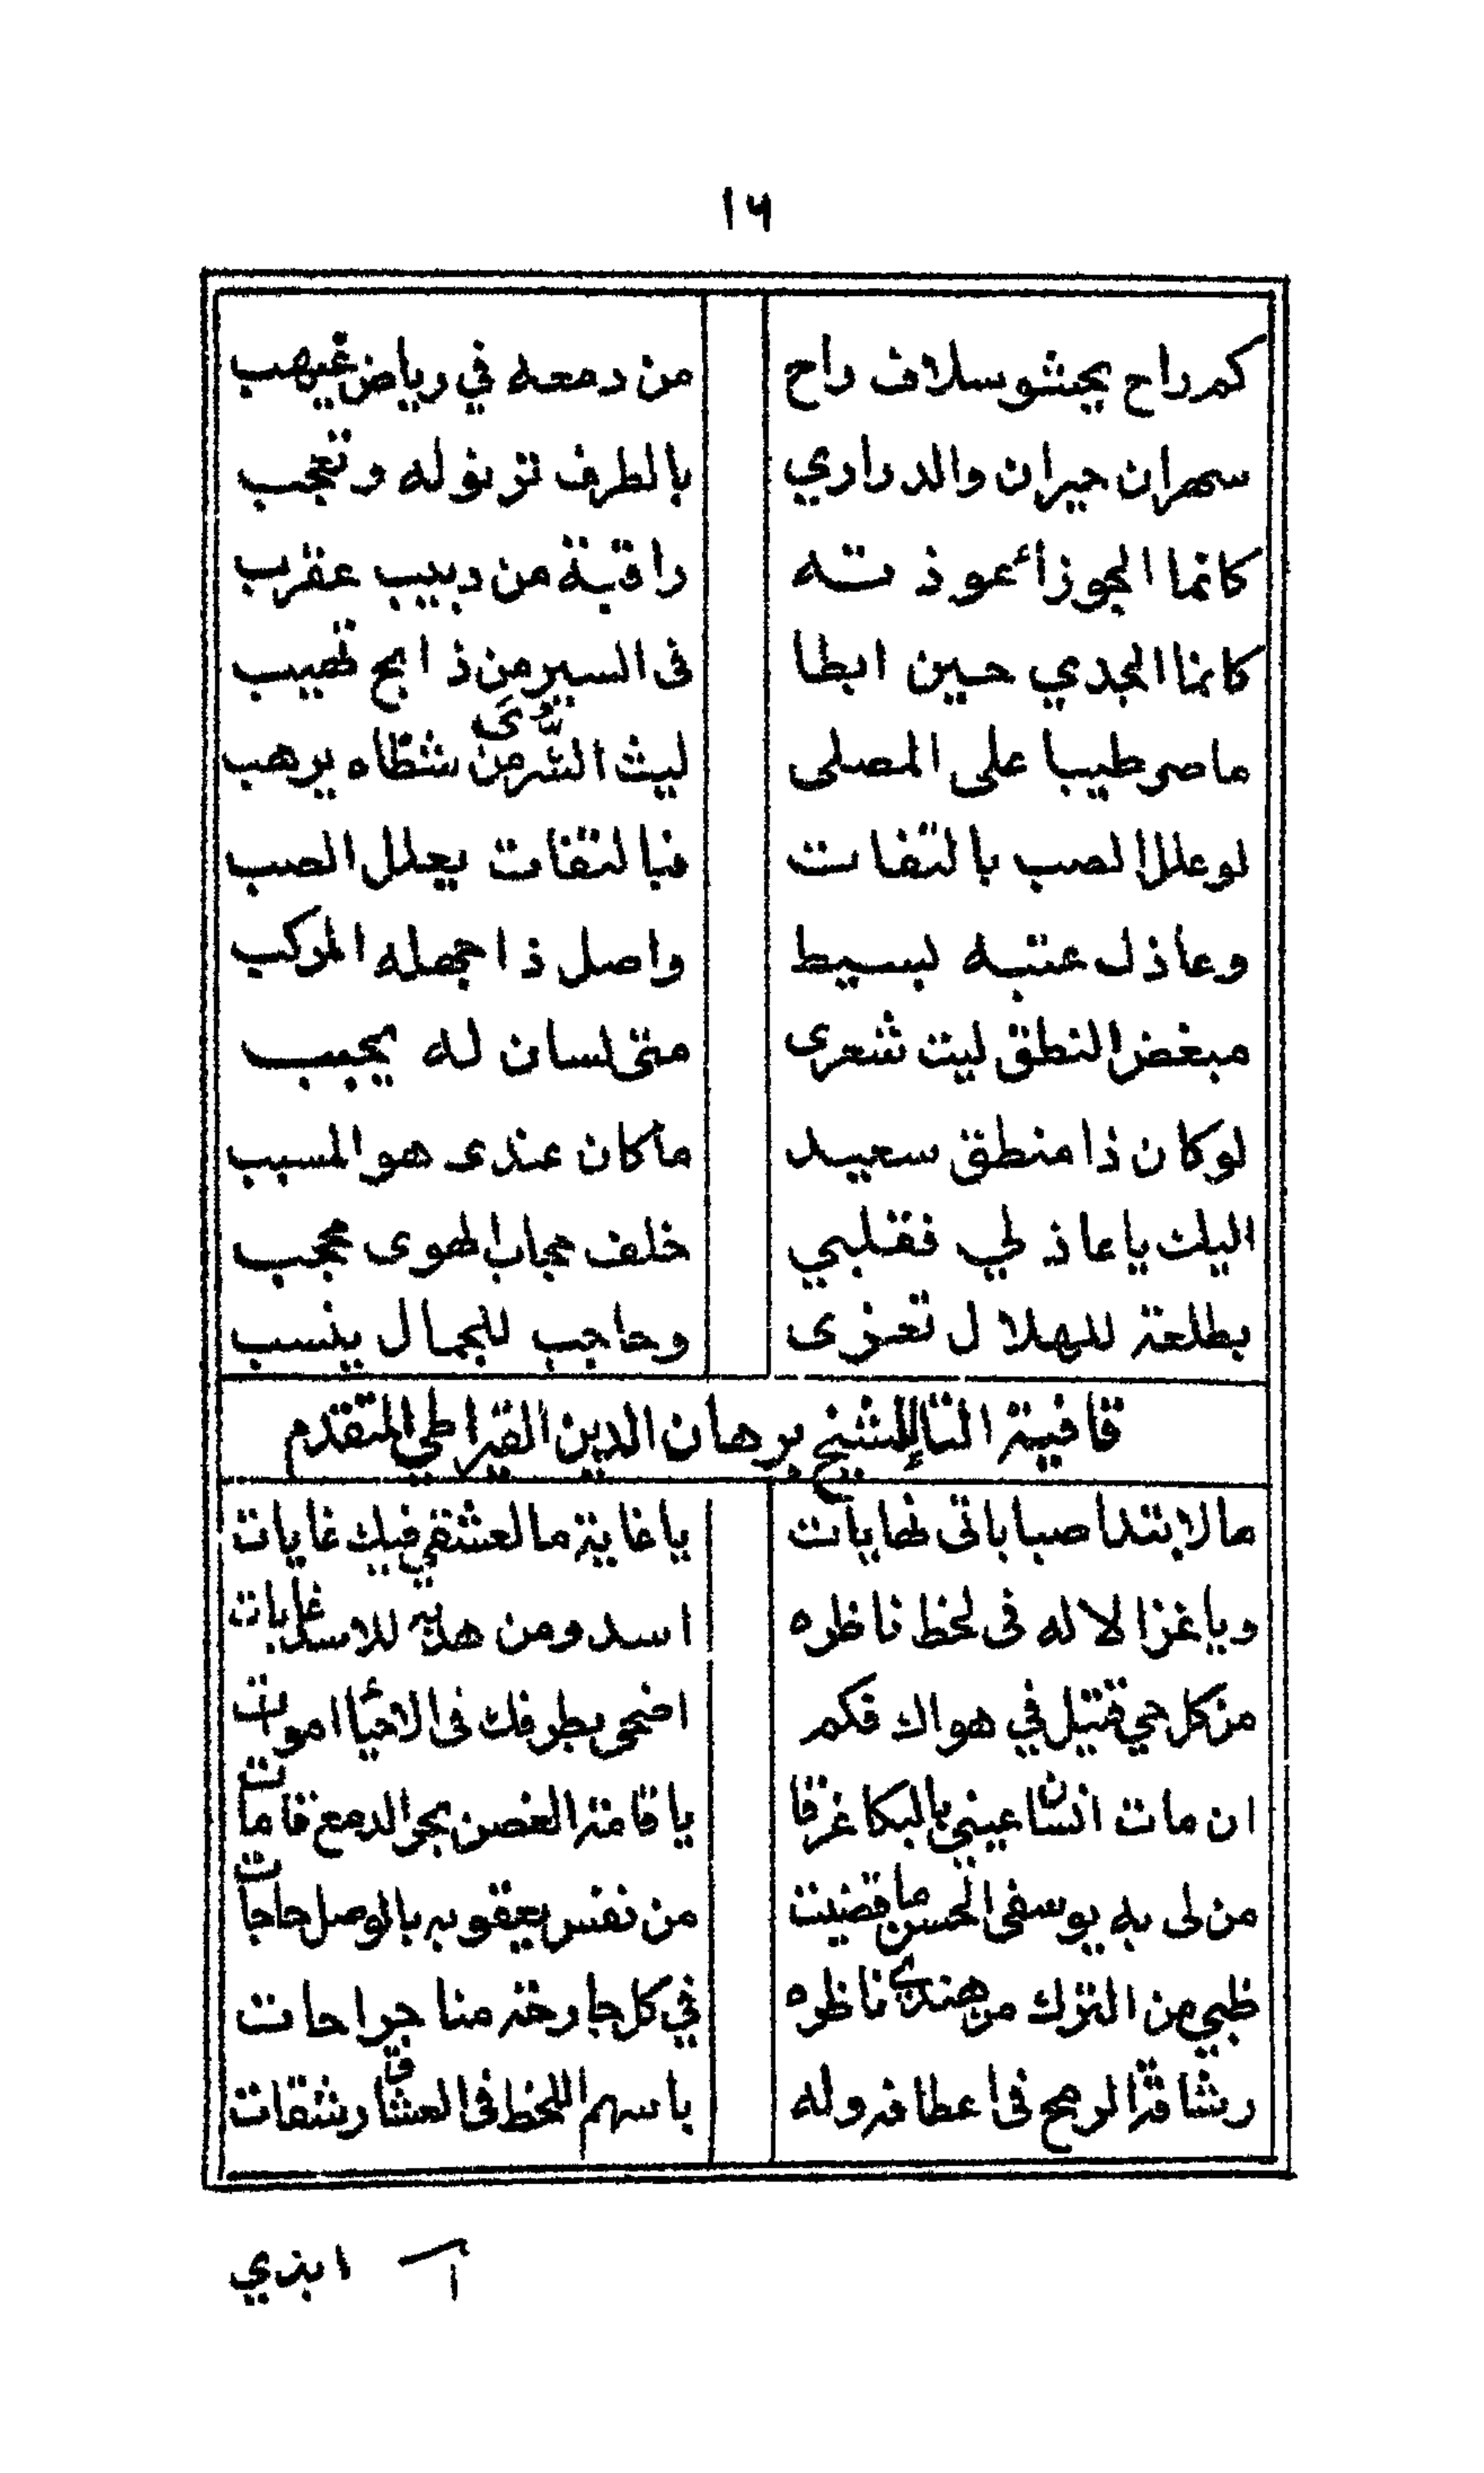 ١٦
كم راح يحشو سلاف راح من دمعه في رياض غيهب
سهران حيران والدراري بالطرف ترنو له وتعجب
كانما الجوزاء عوذته راقبة من دبيب عقرب
كانما الجدي حين ابطا فى السير من ذابح تهيب
ماصر طيبا على المصلى ليث الشرى من سطاه يرهب
لو علل الصب بالتفات فبالتفات يعلل الصب
وعاذل عتبه بسيط واصل ذا جهله المركب
مبغض النطق ليت شعرى متى لسان له يجبب
لو كان ذا منطق سعيد ما كان عندى هو المسبب
اليك يا عاذلي فقلبي خلف حجاب الهوى محجب
بطلعة للهلال تعزى وحاجب للجمال ينسب
قافية التاء للشيخ برهان الدين القيراطي المتقدم
ما لابتدا صباباتى نهايات يا غاية ما لعشقي فيك غايات
ويا غزالا له فى لحظ ناظره اسد ومن هدبه للاسد غابات
من كل حي قتيل في هواك فكم اضحى بطرفك فى الاحياء اموات
ان مات انسان عيني بالبكا غرقا يا قامة الغصن بحر الدمع قامات
من لى به يوسفى الحسن ما قضيت من نفس يعقوبه بالوصل حاجات
ظبي من الترك من هندي ناظره في كل جارحة منا جراحات
رشاقة الرمح فى اعطافه وله باسهم اللحظ فى العشاق رشقات
ابذي